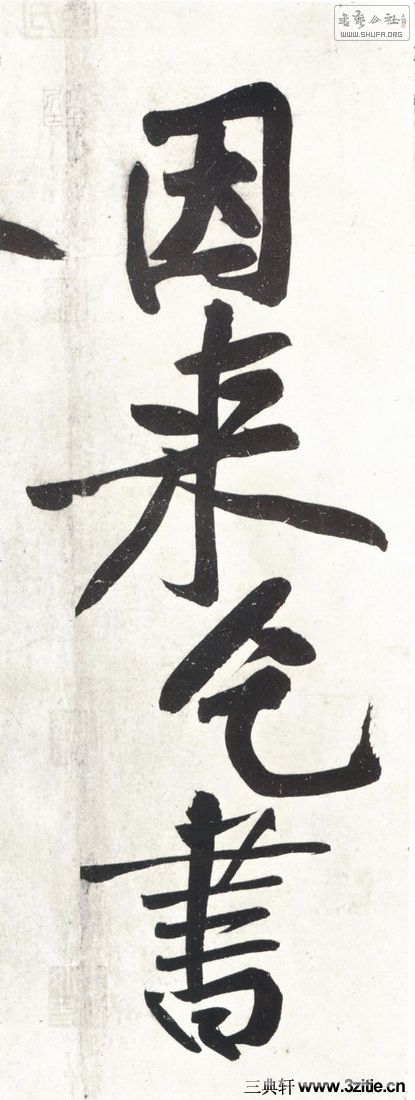 因来乞書
書艺公社
WWW.SHUFA.ORG
三典轩 www.3zitie.cn